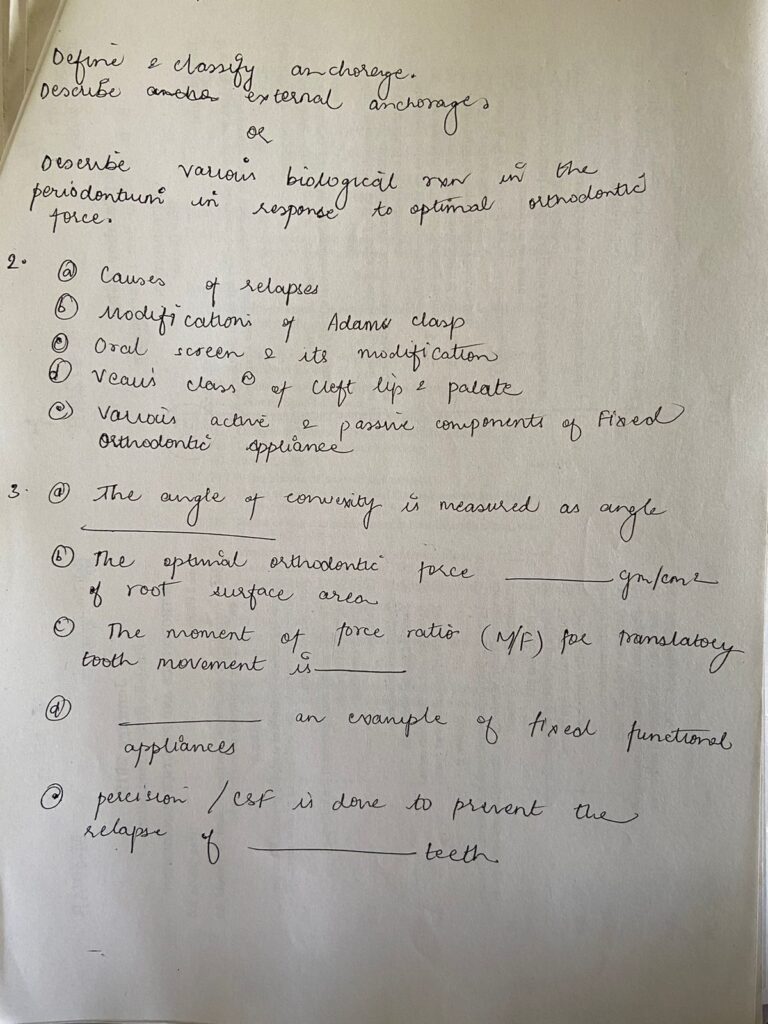 Define & classify anchorage.
Describe external anchorages
or
Describe various biological rxn in the
periodontium in response to optimal orthodontic
force.
2. (a) Causes of relapses
(b) Modifications of Adams clasp
(c) Oral screen & its modification
(d) Veaus class(n) of cleft lip & palate
(e) Various active & passive components of Fixed
orthodontic appliance
3. (a) The angle of convexity is measured as angle
________
(b) The optimal orthodontic force ________ gm/cm2
of root surface area
(c) The moment of force ratio (M/F) for translatory
tooth movement is ________
(d) ________ an example of fixed functional
appliances
(e) percision / CSF is done to prevent the
relapse of ________ teeth